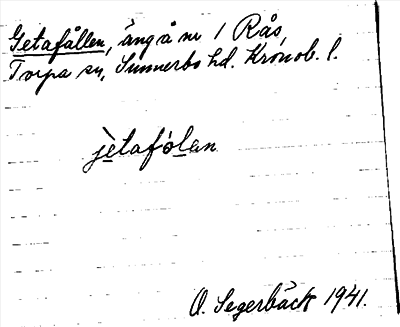 Getafållen, äng å nr 1 Rås,
Torpa sn, Sunnerbo hd. Kronob. l.
jètafólan
O. Segerbäck 1941.